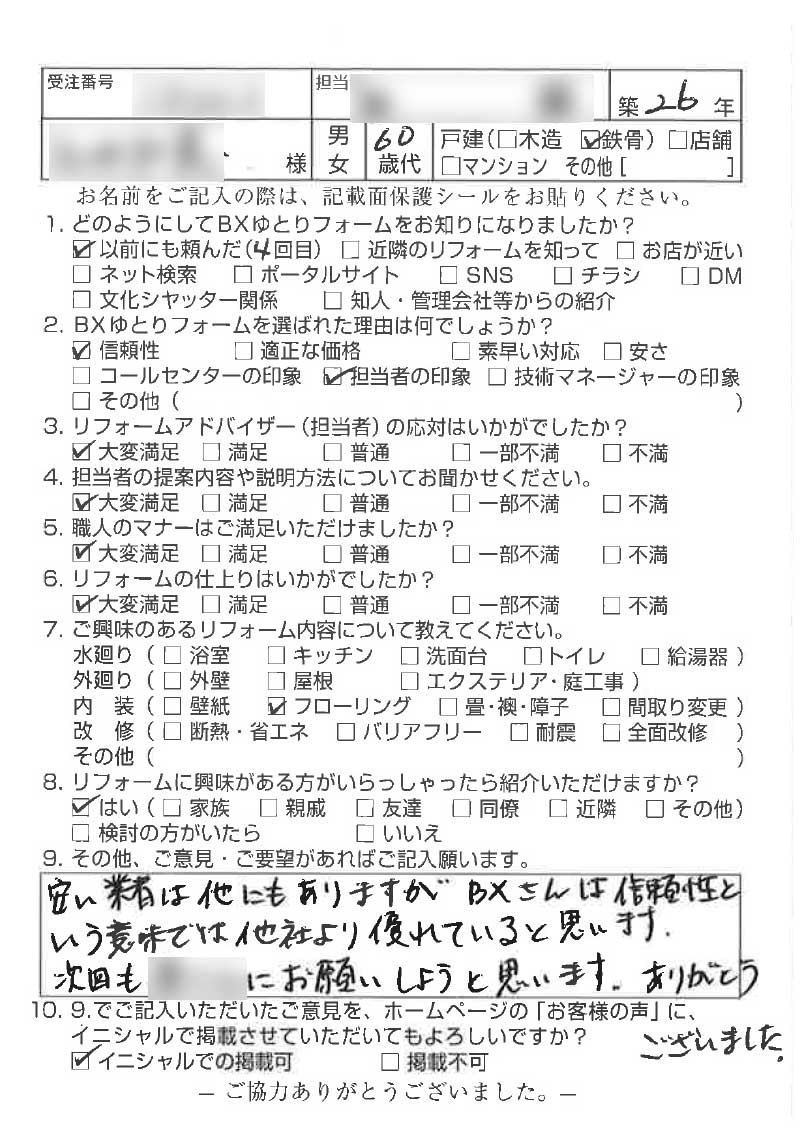 受注番号 担当 築 26 年
様 男 女 60 歳代 戸建(□木造 ☑鉄骨) □店舗
□マンション その他[ ]
お名前をご記入の際は、記載面保護シールをお貼りください。
1. どのようにしてBXゆとりフォームをお知りになりましたか？
☑ 以前にも頼んだ(4回目) □ 近隣のリフォームを知って □ お店が近い
□ ネット検索 □ ポータルサイト □ SNS □ チラシ □ DM
□ 文化シヤッター関係 □ 知人・管理会社等からの紹介
2. BXゆとりフォームを選ばれた理由は何でしょうか？
☑ 信頼性 □ 適正な価格 □ 素早い対応 □ 安さ
□ コールセンターの印象 ☑ 担当者の印象 □ 技術マネージャーの印象
□ その他( )
3. リフォームアドバイザー(担当者)の応対はいかがでしたか？
☑ 大変満足 □ 満足 □ 普通 □ 一部不満 □ 不満
4. 担当者の提案内容や説明方法についてお聞かせください。
☑ 大変満足 □ 満足 □ 普通 □ 一部不満 □ 不満
5. 職人のマナーはご満足いただけましたか？
☑ 大変満足 □ 満足 □ 普通 □ 一部不満 □ 不満
6. リフォームの仕上りはいかがでしたか？
☑ 大変満足 □ 満足 □ 普通 □ 一部不満 □ 不満
7. ご興味のあるリフォーム内容について教えてください。
水廻り(□ 浴室 □ キッチン □ 洗面台 □トイレ □ 給湯器)
外廻り(□ 外壁 □ 屋根 □ エクステリア・庭工事)
内 装(□ 壁紙 ☑ フローリング □ 畳・襖・障子 □ 間取り変更)
改 修(□ 断熱・省エネ □ バリアフリー □ 耐震 □ 全面改修)
その他( )
8. リフォームに興味がある方がいらっしゃったら紹介いただけますか？
☑ はい(□ 家族 □ 親戚 □ 友達 □ 同僚 □ 近隣 □ その他)
□ 検討の方がいたら □ いいえ
9. その他、ご意見・ご要望があればご記入願います。
安い業者は他にもありますが BXさんは信頼性と
いう意味では他社より優れていると思います.
次回も にお願いしようと思います. ありがとう
ございました.
10. 9.でご記入いただいたご意見を、ホームページの「お客様の声」に、
イニシャルで掲載させていただいてもよろしいですか？
☑ イニシャルでの掲載可 □ 掲載不可
― ご協力ありがとうございました。―